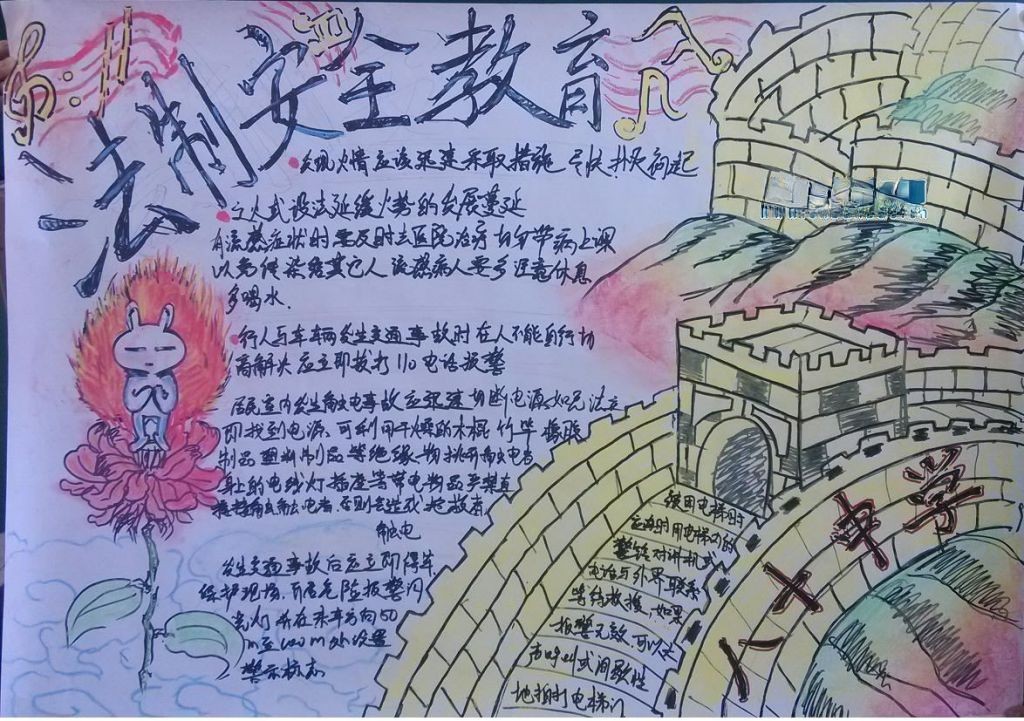 法制安全教育
发现火情应该迅速采取措施 引火扑灭初起
之火或设法延缓火势的发展蔓延
有流感症状时要及时去医院治疗切勿带病上课
以免传染给其它人流感病人要多注意休息
多喝水.
行人与车辆发生交通事故时在人不能自行协
商解决应立即拨打110电话报警
居民室内发生触电事故应迅速切断电源如无法立
即找到电源、可利用干燥的木棍 竹竿 橡胶
制品 塑料制品 等绝缘物挑开触电者
身上的电线灯插座等带电物品 严禁直
接接触触电者 否则会造成抢救者
触电
发生交通事故后应立即停车
保护现场、开启危险报警闪
光灯 并在来车方向50
m至100m处设置
警示标志
使用电梯时
应及时用电梯内的
警铃 对讲机或
电话与外界联系
等待救援、如果
报警无效、可以大
声呼叫或间歇性
地拍打电梯门
八十中学